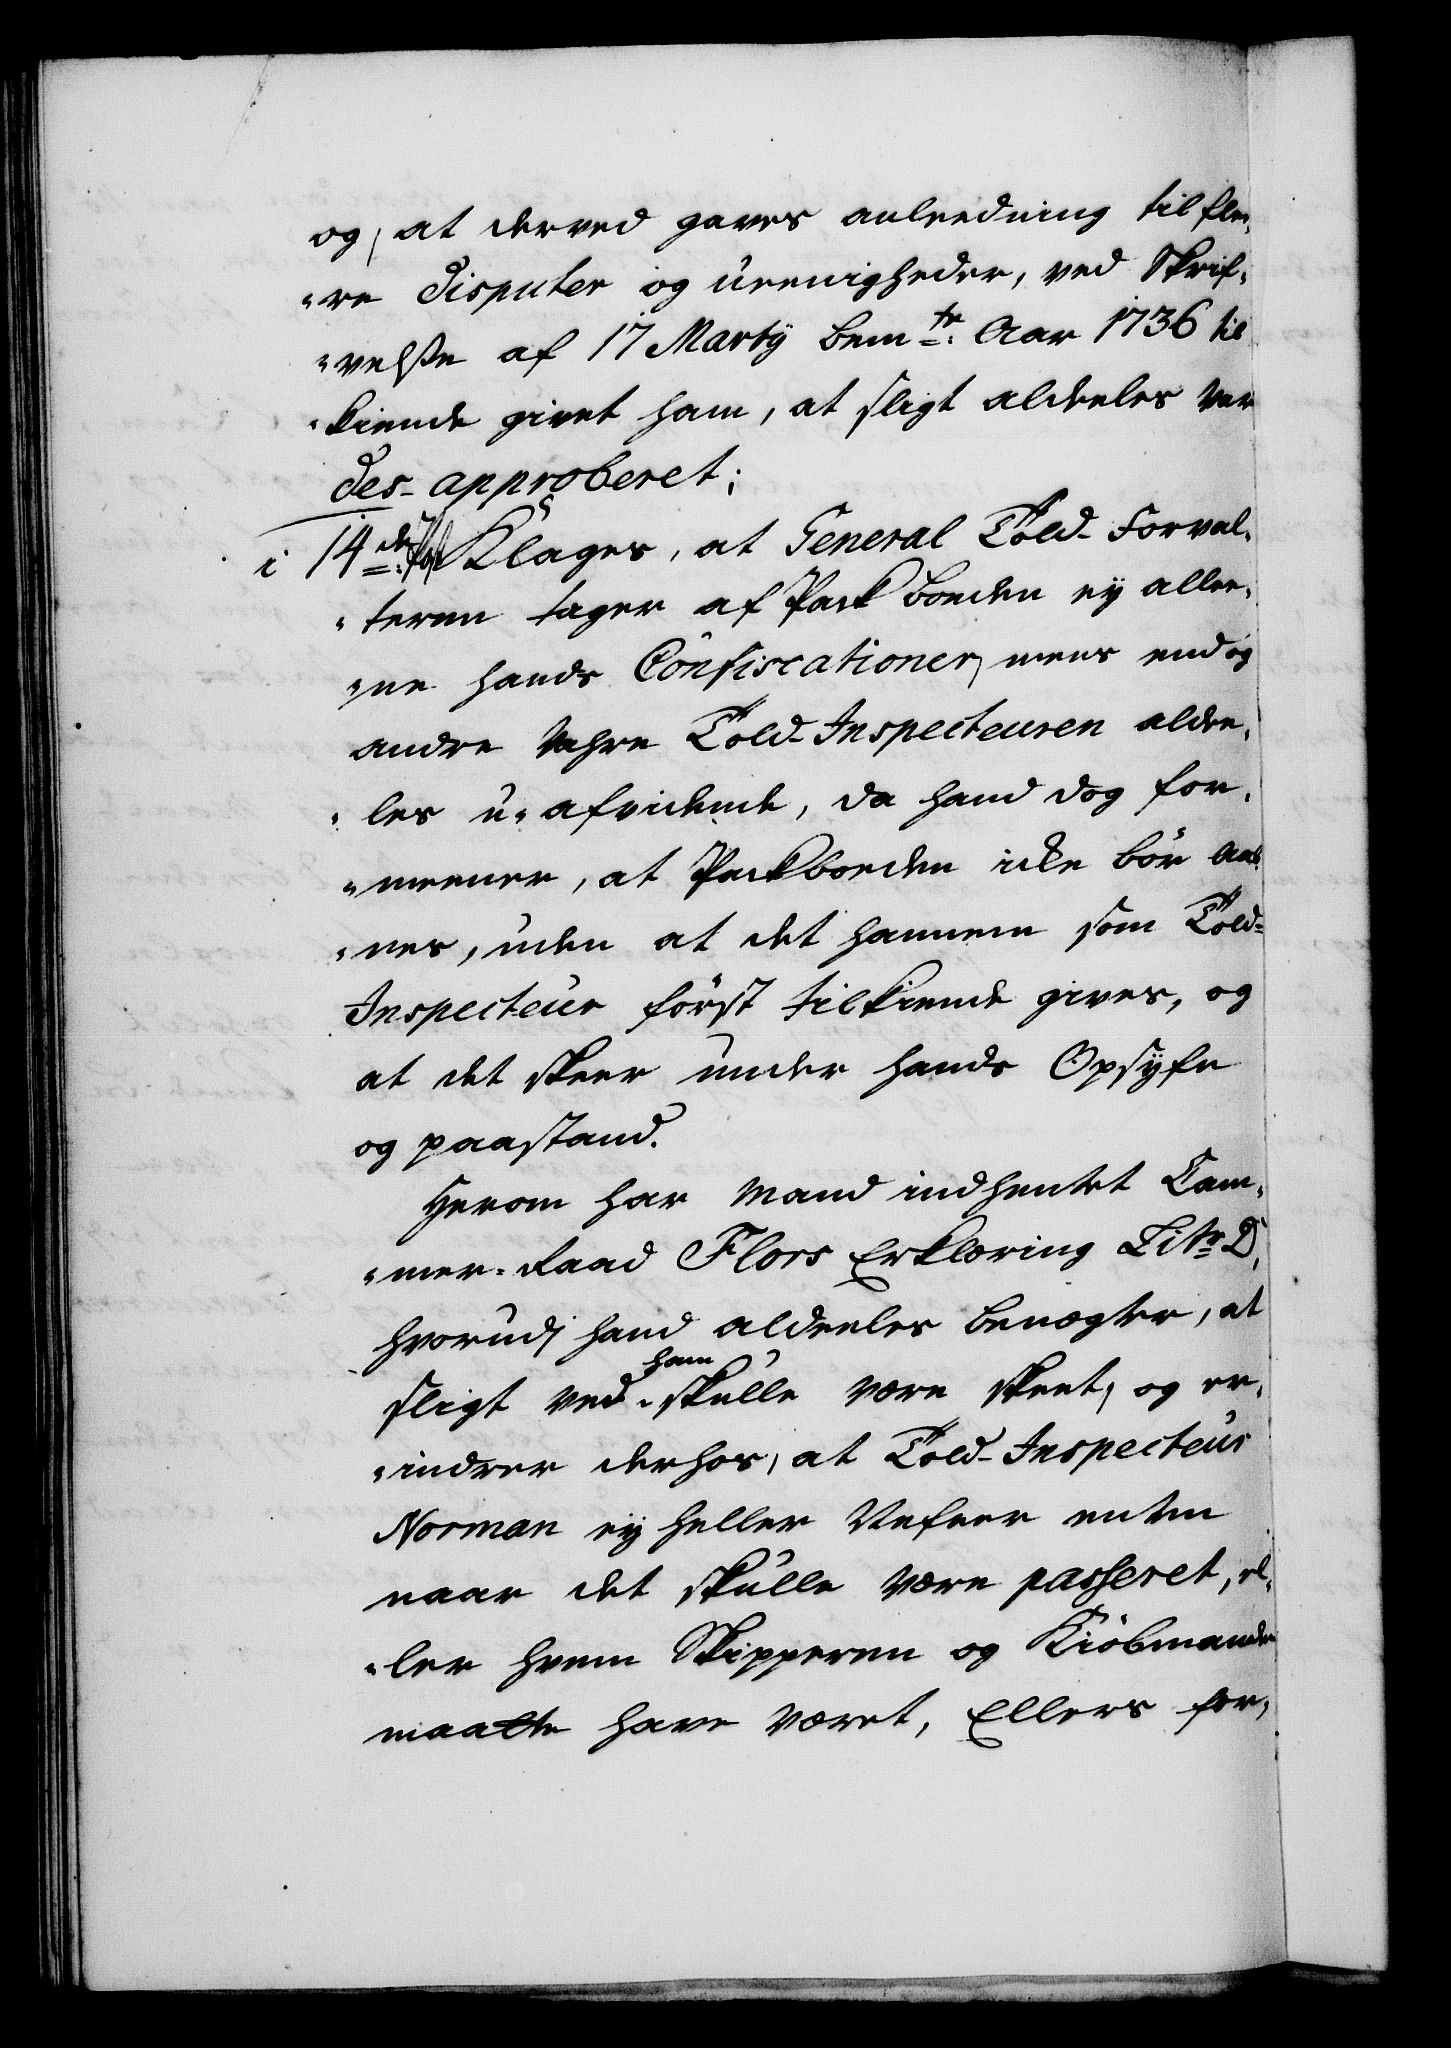 og, at derved gaves anleedning til flee,
"re Disputer og ueenigheder, ved Skrif,
"velsse af 17 Martÿ bem.te Aar 1736 til
"kiende givet ham, at sligt aldeeles var
des-approberet;
i 14.de Post Klages, at General Told-Forval,
"teren tager af Pack boeden eÿ allee,
"ne hands Confiscationer, mens endog
andre Vahre Told-Inspecteuren aldee,
"les u-afvidende, da hand dog for,
"meener, at Packboeden icke bør aab
"nes, uden at det hannem som Told-
Inspecteur først tilkiende gives, og
at det skeer under hands Opsÿn
og paastand.
Herom har Mand indhentet Cam,
"mer-Raad Flors Erklæring Litr. D,
hvorudj hand aldeeles benægter, at
sligt ved ham skulle være skeet, og er,
"indrer derhos, at Told-Inspecteur
Norman eÿ heller Nefner enten
naar det skulle være passeret, el,
"ler hvem Skipperen og Kiøbmanden
maatte have været, Ellers for,